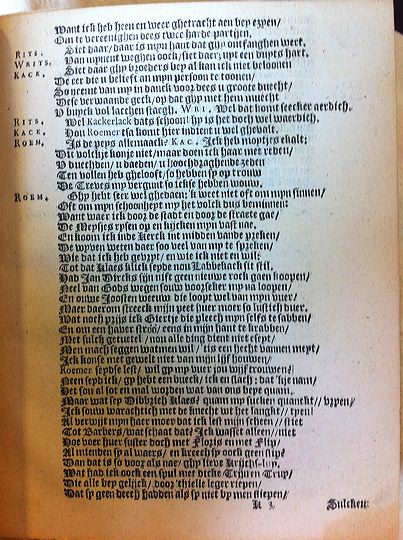 Want ick heb heen en weer ghetracht aen bey ezyen/
Om te vereenighen dees twee harde partijen.
RITS. Siet daar/ daar is mijn hant dat ghy ontfanghen wert.
WRITS. Van mynent weghen oock/ siet daer; ypt een dupts hart.
KACK. Siet daar ghy broeders bey al kan ick niet beloonen
De eer die u belieft an mijn persoon te toonen/
So neemt van my in danck voor dees u groote duecht/
Dese verwaande geck/ op dat ghy met hem muecht
U buyck vol lachen staegh. WRI. Wel dat komt seecker aerdich.
RITS. Wel Kackerlack dats schoon! hy is het doch wel waerdich.
KACK. Hou Roemer tsa komt hier indient u wel ghevalt.
ROEM. Is de peys allemaack? KAC. Ick heb mortjes ekalt;
Dit volckje konje niet/ maar doen ick haar met reden/
U duechden/ u daeden/ u hoochdraaghende zeden
Ten vollen heb ghelooft/ so hebben sy op trouw
De Treves my vergunt so ickse hebben wouw.
ROEM. Ghy hebt seer wel ghedaen; 'k weet niet oft om mijn sinnen/
Oft om mijn schoonheyt my het volck dus beminnen:
Want waer ick door de stadt en door de straete gae/
De Meysjes rysen op en kijcken mijn vast nae.
En koom ick inde Kerck int midden vande preken/
De wyven weten daer soo veel van my te spreken/
Wie dat ick heb gevryt/ en wie ick niet en wil:
Tot dat Klaes klick seyde nou Labbekack sit stil.
Had Jan Dircks sijn nift geen nieuwe rock gaen koopen/
Neel van Gods wegen souw voorseker my na loopen/
En ouwe Joosten weeuw die loopt wel van mijn vuer/
Maer daerom streeck mijn peet huer moer so lustich huer.
Wat noch prijs ick Giertje die pleech mijn selfs te sabben/
En om een haver stroo/ eens in mijn hant te krabben/
Met sulck getuetel/ nou alle ding dient niet esept/
Men mach seggen watmen wil/ 'tis een hecht van een meyt/
Ick konse niet gewelt niet van mijn lijf houwen/
Roemer seydse lest/ wil gy mp vuer jou wijf trouwen?
Neen seyd ick/ gy hebt een vueck/ ick en slach; dat 'kje nam/
Het sou al sot en mal worden wat van ons bepe quam.
Maar wat sey Dibbrich Klaes? quam my sucken quanckt// vrpen/
Ick souw warachtich met de knecht uw het langkt// tpen!
Al verwijt mijn haer moer dat ick lest mijn schein// stiet
Tot Barbers/ wat schaat dat? Ick wasset alleen/ niet
Hoe voer huer suster doch met Floris en met Fliy/
Al mienden sy al waers/ en kreech sy oock geen stip?
Dan dat is so voor als nae/ ghy lieve Krijchs-luy.
Wat had ick oock een spul met dicke Trijn en Truy/
Die alle bey gelijck/ door 'thielle leger riepen/
Dat sy geen deech hadden als sy niet by men sliepen/
K 3. Sulcken